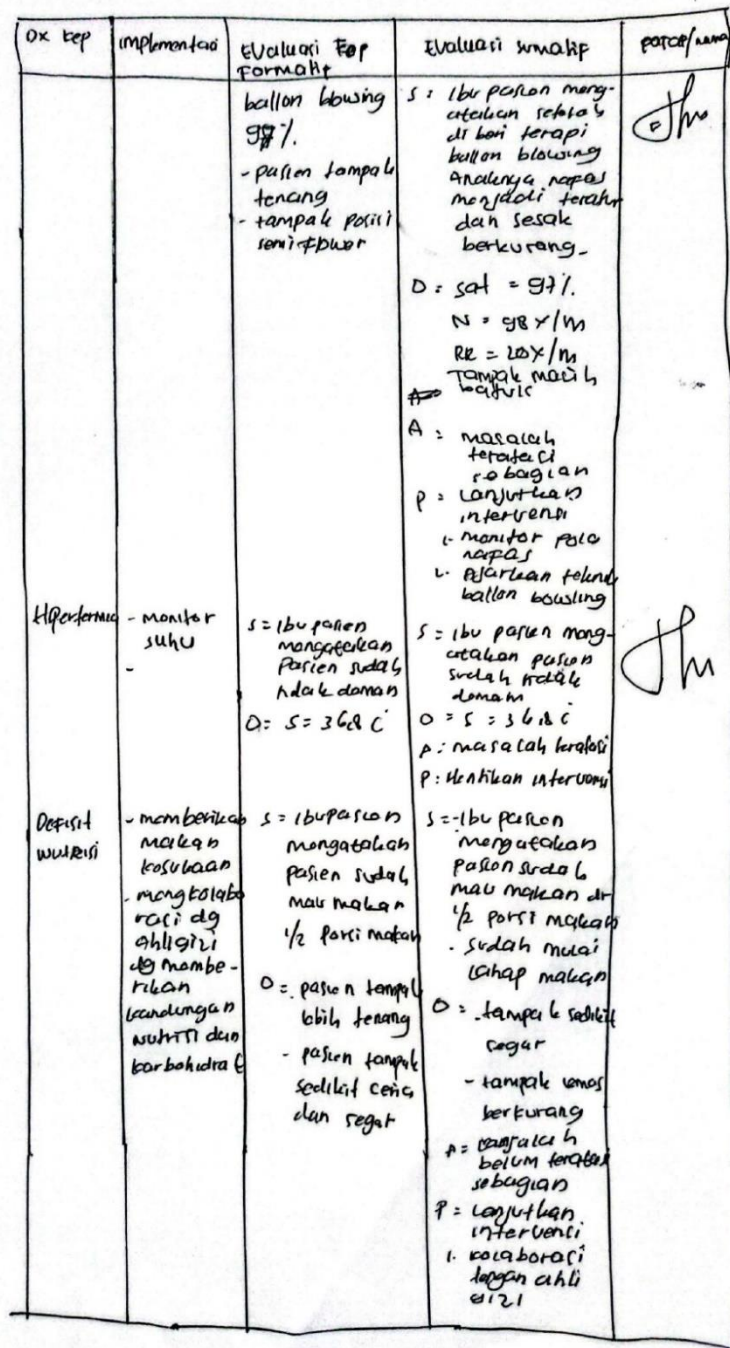 Dx kep
Implementasi
Evaluasi Fop
Formatif
Evaluasi sumatif
paraf/nama
ballon blowing
97%.
- pasien tampak
tenang
- tampak posisi
semi fowler
S : Ibu pasien meng-
atakan setelah
di beri terapi
ballon blowing
Anaknya napas
menjadi teratur
dan sesak
berkurang.
O : sat = 97%.
N = 98 x/m
RR = 20x/m
Tampak masih
batuk
A : masalah
teratasi
sebagian
P : Lanjutkan
intervensi
1. monitor pola
napas
2. Ajarkan teknik
ballon bowling
Hipertermia
- monitor
suhu
-
S = ibu pasien
mengatakan
Pasien sudah
tidak demam
O = S = 36,8 c
S = ibu pasien meng-
atakan pasien
sudah tidak
demam
O = S = 36,8 c
A : masalah teratasi
P : Hentikan intervensi
Defisit
Nutrisi
- memberikan
makan
kesukaan
- mengkolabo
rasi dg
ahli gizi
dg membe-
rikan
kandungan
nutrisi dan
karbohidrat
S = ibu pasien
mengatakan
pasien sudah
mau makan
1/2 porsi makan
O = pasien tampak
lebih tenang
- pasien tampak
sedikit ceria
dan segar
S = - ibu pasien
mengatakan
pasien sudah
mau makan dr
1/2 porsi makan
- sudah mulai
lahap makan
O = - tampak sedikit
segar
- tampak lemas
berkurang
A = masalah
belum teratasi
sebagian
P = Lanjutkan
intervensi
1. kolaborasi
dengan ahli
gizi